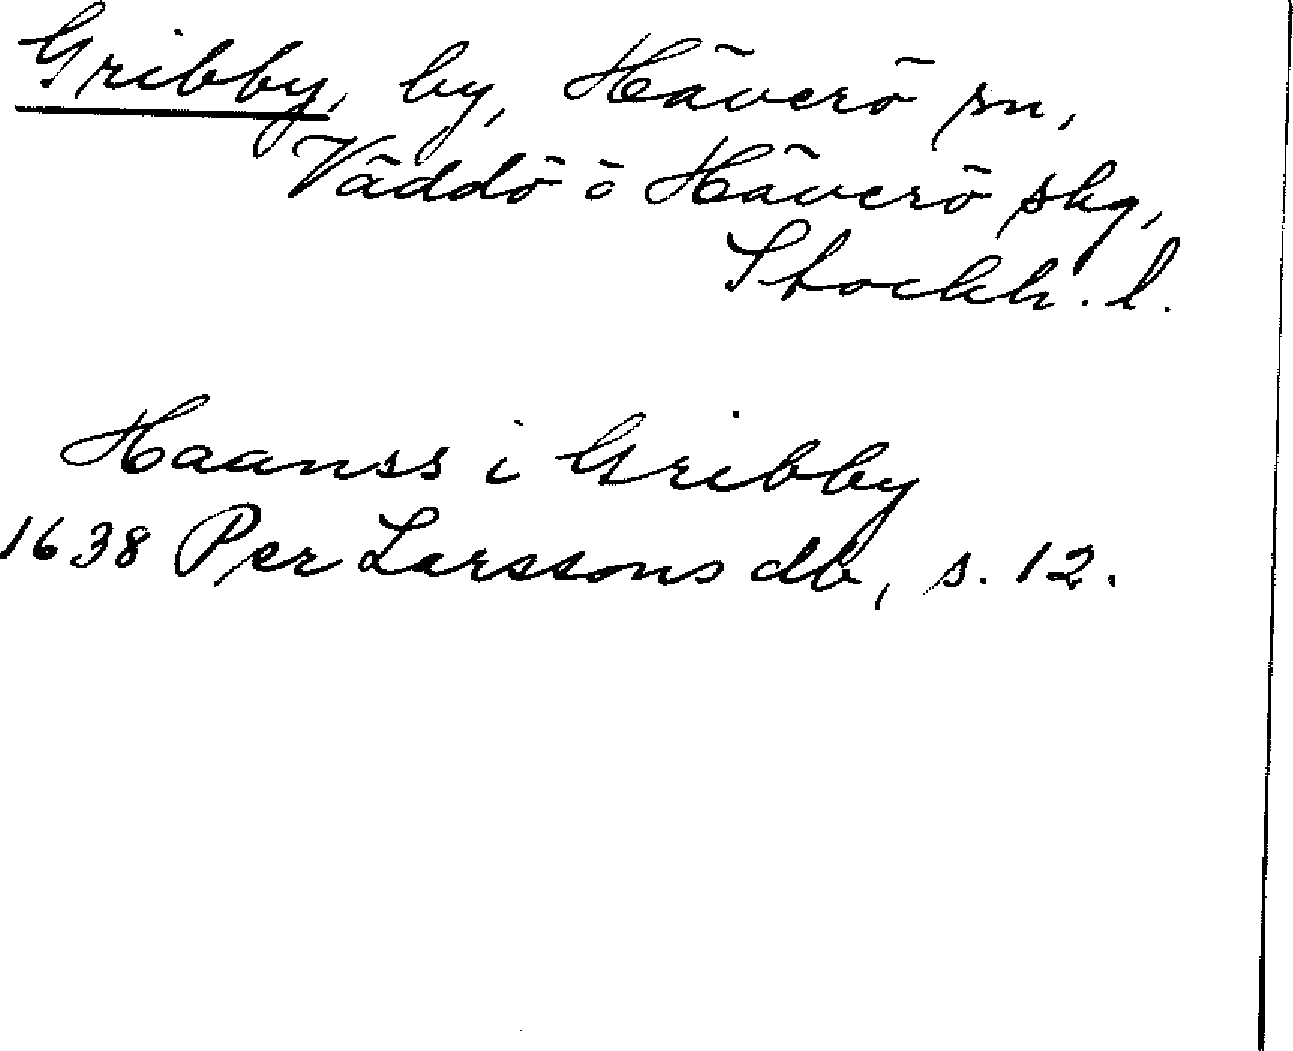 Gribby, by, Häverö sn,
Väddö o Häverö skg,
Stockh. l.
Haanss i Gribby
1638 Per Larssons db, s. 12.